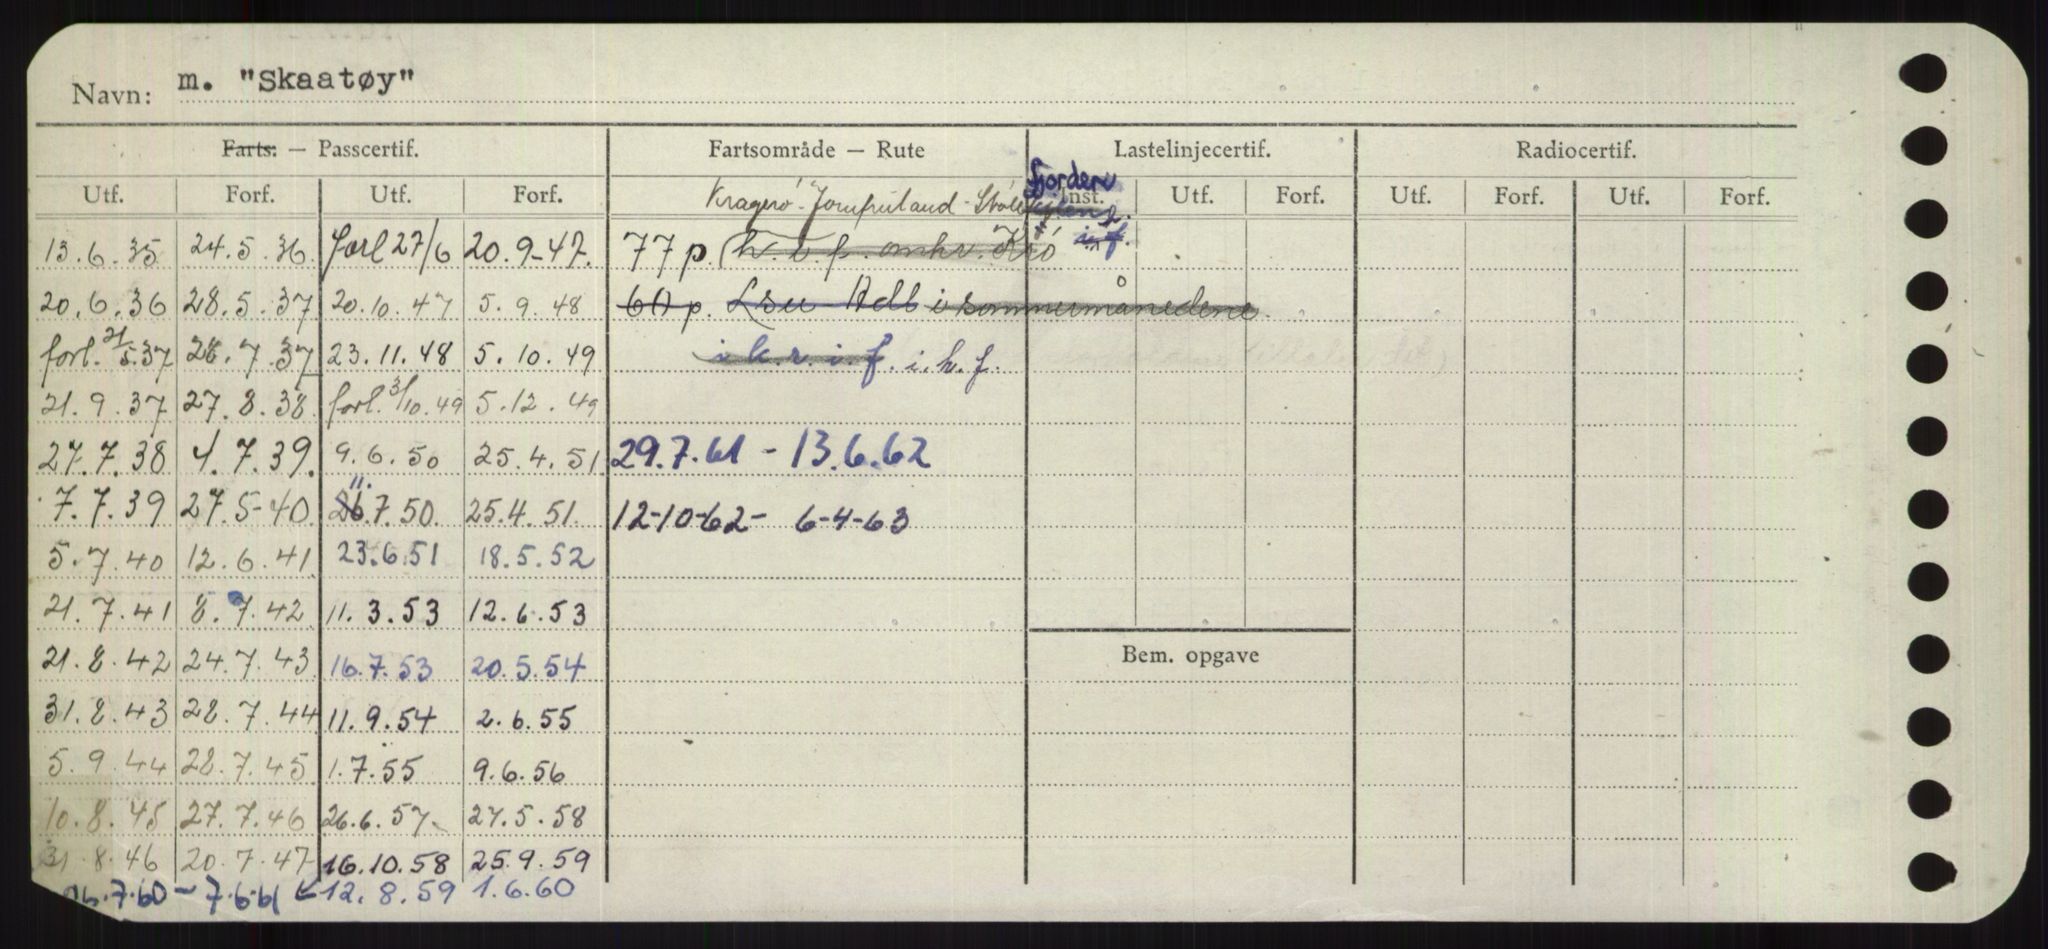 Navn: m. "Skaatøy"
Farts. — Passcertif. Fartsområde — Rute Lastelinjecertif. Radiocertif.
Utf. Forf. Utf. Forf. Inst. Utf. Forf. Utf. Forf. Utf. Forf.
Kragerö - Jomfruland - fjorden
i.f.
13.6.35 24.5.36. forl 27/6 20.9-47. 77 p. h. i. f. omkr. Krö
20.6.36 28.5.37 20.10.47 5.9.48 60 p. i sommermånedene.
forl. 21/5.37 28.7.37 23.11.48 5.10.49 i k. r. i. f. i. h. f.
21.9.37 27.8.38. forl. 31/10.49 5.12.49
27.7.38 1.7.39. 9.6.50 25.4.51. 29.7.61 - 13.6.62
7.7.39 27.5-40. 26.7.50. 25.4.51. 12-10-62- 6-4-63
11.
5.7.40 12.6.41 23.6.51 18.5.52
21.7.41 8.7.42 11.3.53 12.6.53
21.8.42 24.7.43 16.7.53 20.5.54
Bem. opgave
31.8.43 28.7.44 11.9.54 2.6.55
5.9.44 28.7.45 1.7.55 9.6.56
10.8.45 27.7.46 26.6.57 27.5.58
31.8.46 20.7.47 16.10.58 25.9.59
26.7.60 - 7.6.61 12.8.59 1.6.60